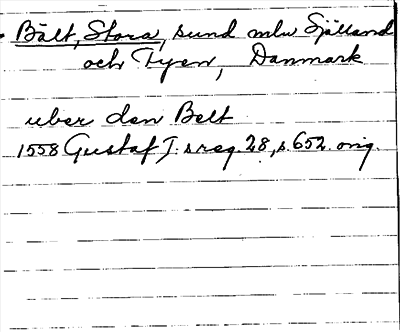 Bält, Stora, sund mlw Själland
och Fyen, Danmark
uber den Belt
1558 Gustaf I:s reg. 28, s. 652. orig.